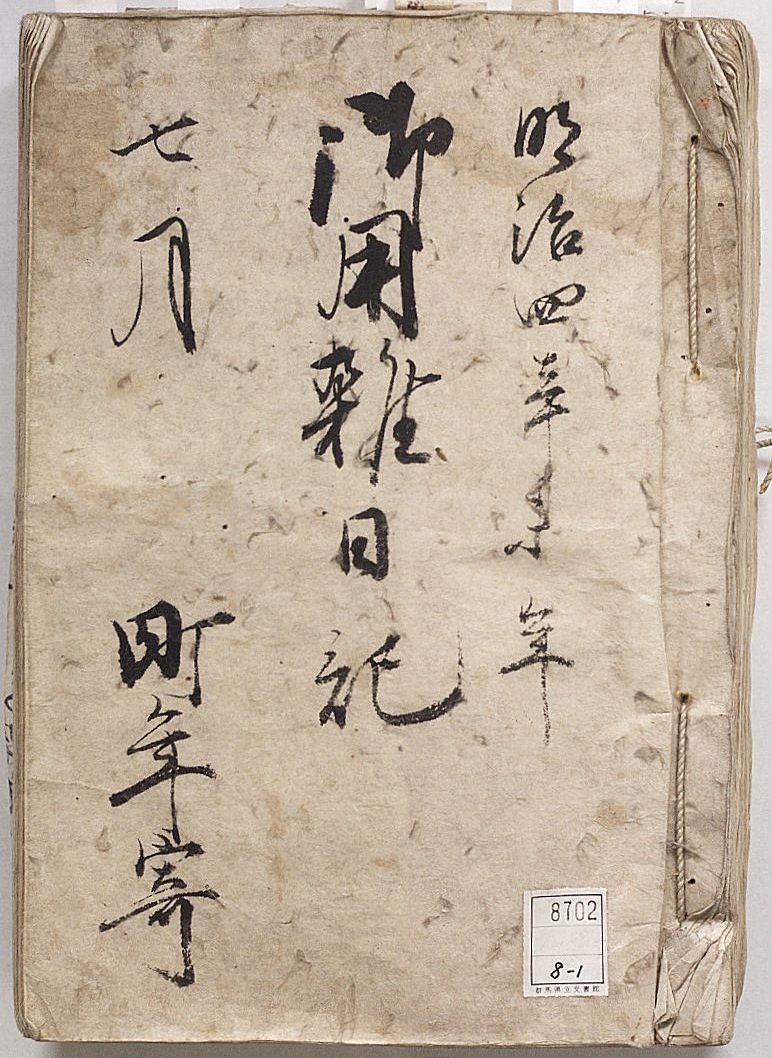 明治四辛未年
御用雑日記
七月
町年寄
8702
8-1
群馬県立文書館